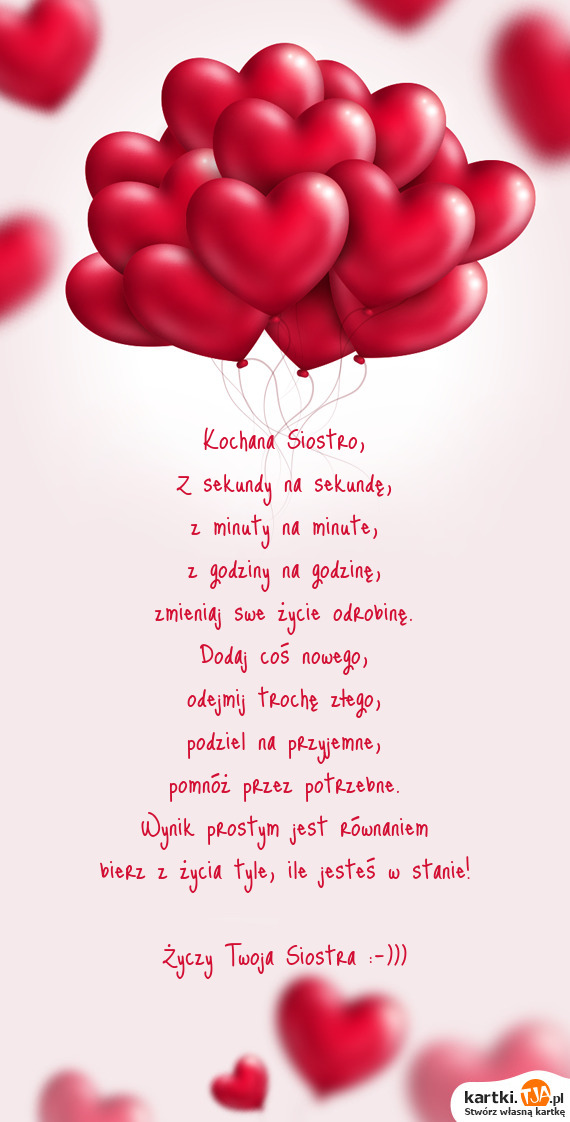 Kochana Siostro,
Z sekundy na sekundę,
z minuty na minute,
z godziny na godzinę,
zmieniaj swe życie odrobinę.
Dodaj coś nowego,
odejmij trochę złego,
podziel na przyjemne,
pomnóż przez potrzebne.
Wynik prostym jest równaniem
bierz z życia tyle, ile jesteś w stanie!
Życzy Twoja Siostra :-)))
kartki.TJA.pl
Stwórz własną kartkę